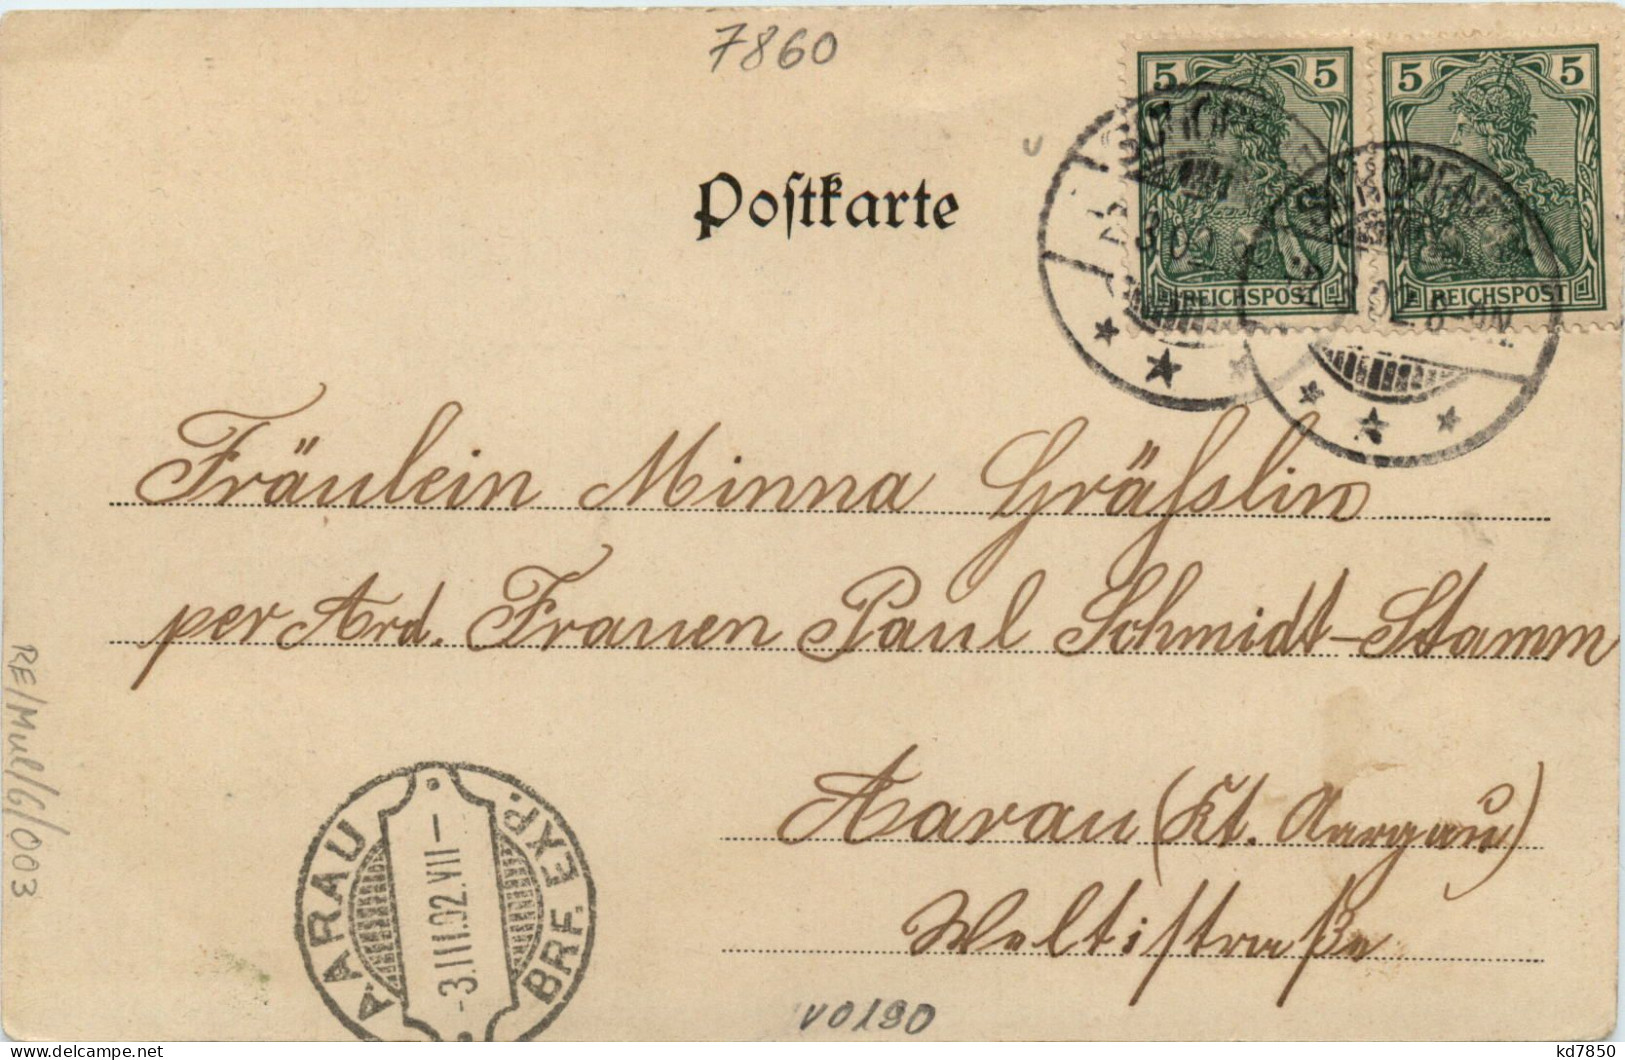 7860
5 5 5 5
REICHSPOST REICHSPOST
02 8-9N
Postkarte
Fräulein Minna Gräfslin
per Adr. Frauen Paul Schmidt-Stamm
Aarau (Kt. Aargau)
Weltistraße
AARAU
-3.III.02.VII-
BRF. EXP.
RE/Mul/G/003
V0190
kd7850